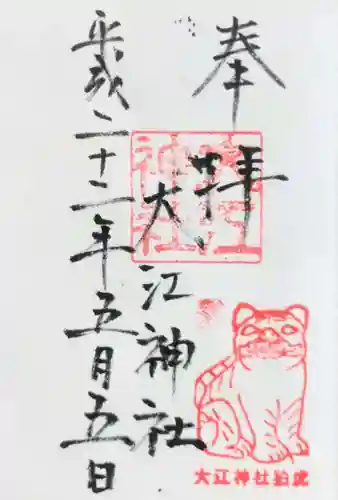 奉拝
大江神社
平成二十二年五月五日
大江神社
大江神社狛虎